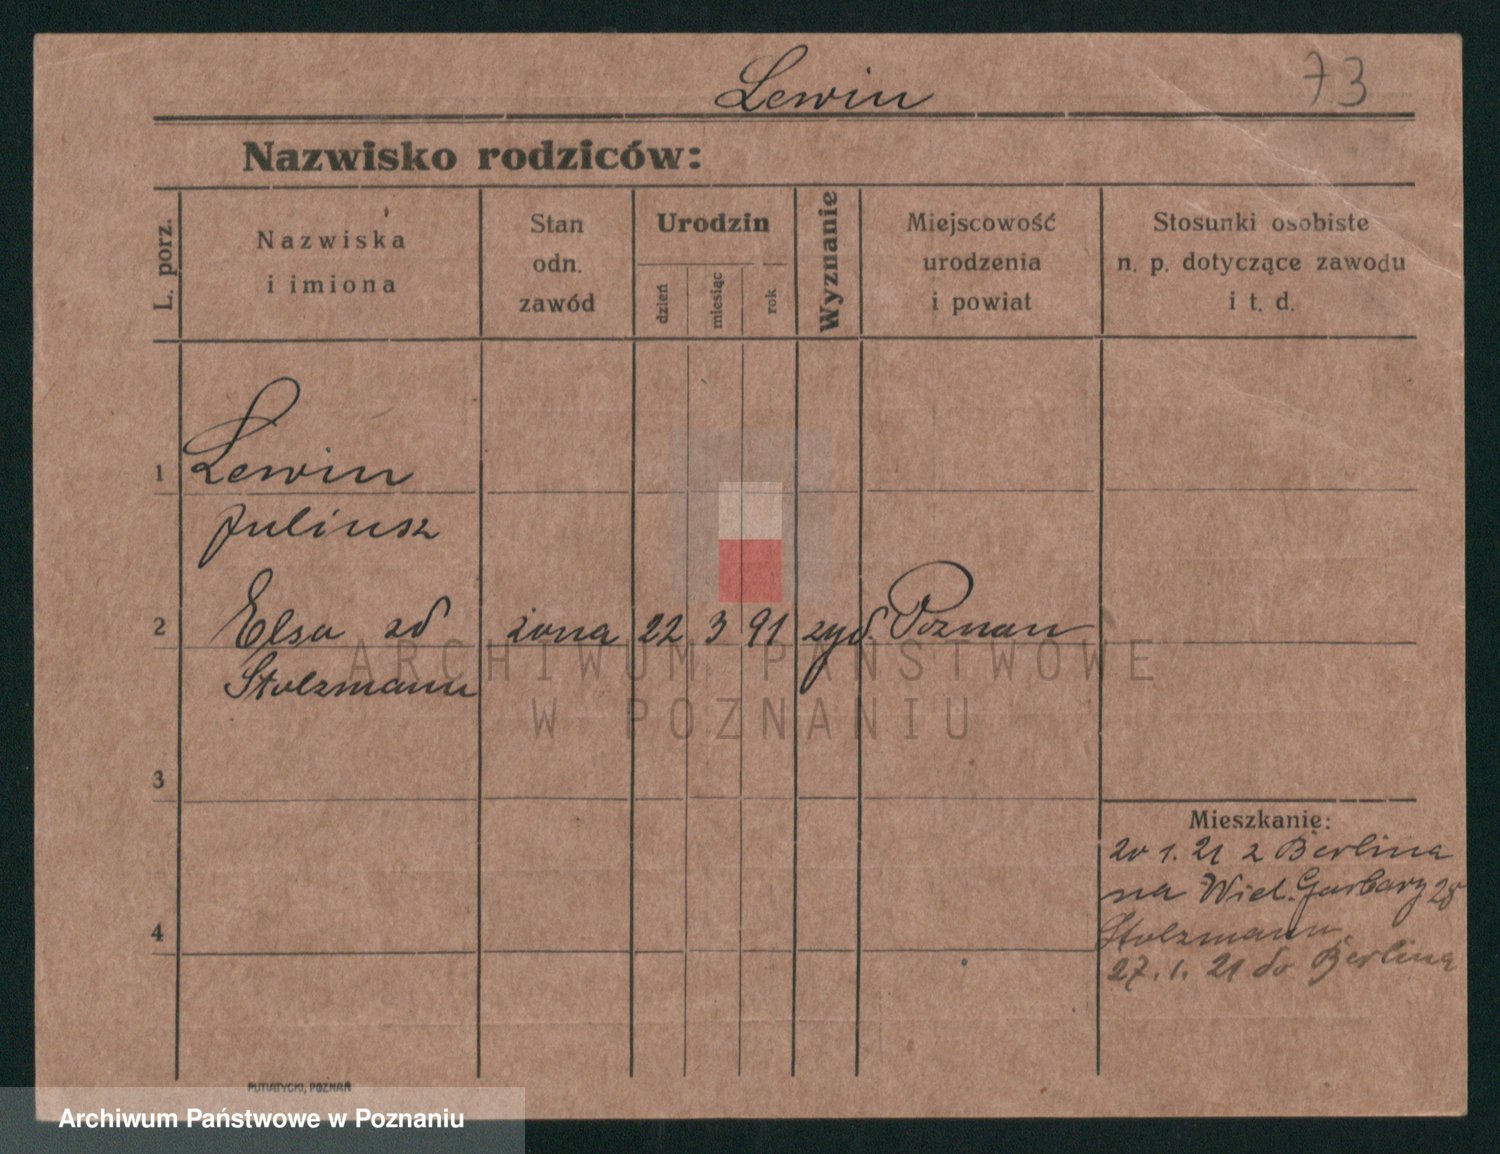 Lewin
73
Nazwisko rodziców:
L. porz.
Nazwiska
i imiona
Stan
odn.
zawód
Urodzin
dzień
miesiąc
rok
Wyznanie
Miejscowość
urodzenia
i powiat
Stosunki osobiste
n. p. dotyczące zawodu
i t. d.
1 Lewin
Juliusz
2 Elsa zd żona 22 3 91 żyd. Poznan
Stolzmann
3
4
Mieszkanie:
20 1. 21 z Berlina
na Wiel. Garbary 28
Stolzmann
27. 1. 21 do Berlina
PUTIATYCKI, POZNAŃ
ARCHIWUM PAŃSTWOWE
W POZNANIU
Archiwum Państwowe w Poznaniu